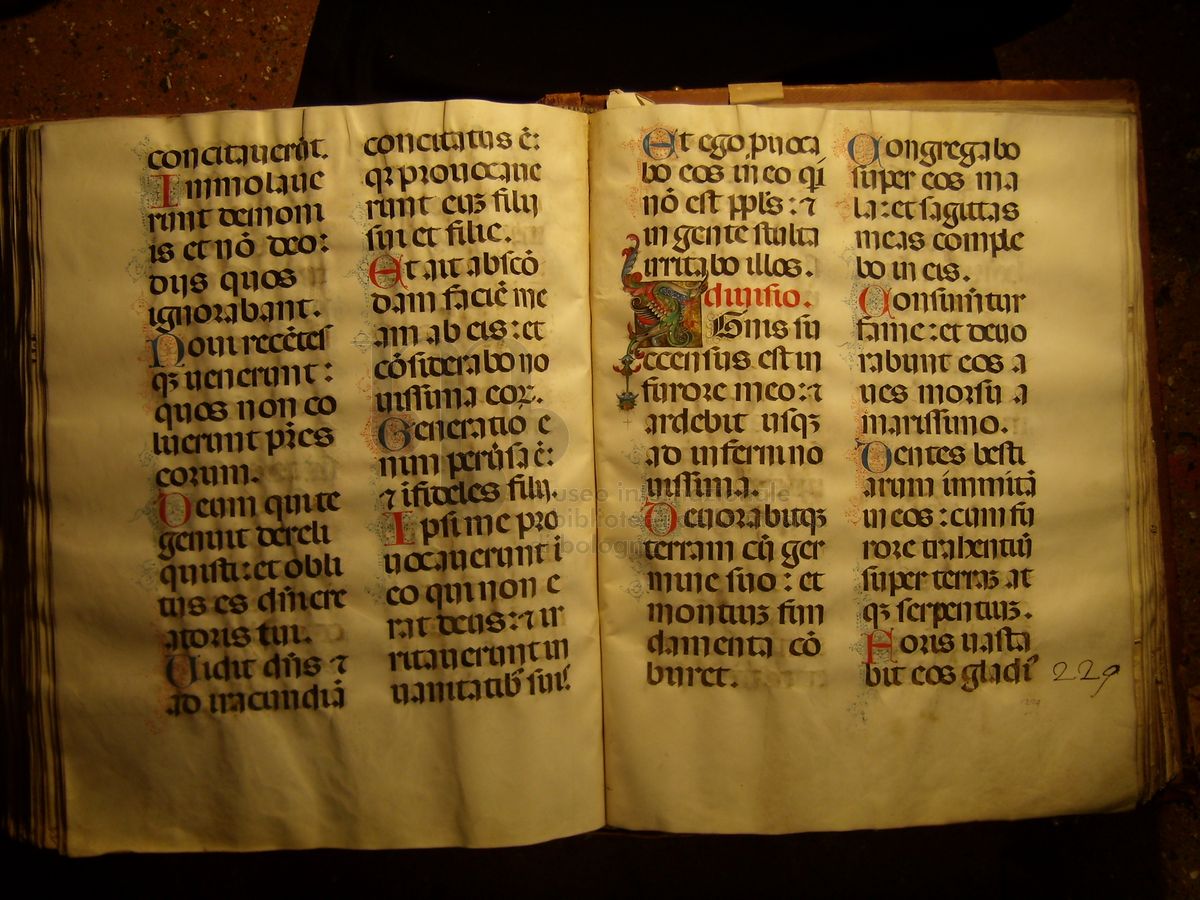 concitauerūt.
Immolaue
runt demoni
is et nō deo:
diis quos
ignorabant.
Noui recētes
qꝫ uenerunt:
quos non co
luerunt pr̄es
eorum.
Deum qui te
genuit dereli
quisti: et obli
tus es dn̄i cre
atoris tui.
Uidit dn̄s ⁊
ad iracundiā
concitatus ē:
qꝛ prouocaue
runt eum filii
sui et filie.
Et ait abscō
dam faciē me
am ab eis: et
cōsiderabo no
uissima eoꝝ.
Generatio e
nim peruersa ē:
⁊ ifideles filii.
Ipsi me pro
uocauerunt i
eo qui non e
rat deus: ⁊ ir
ritauerunt in
uanitatibꝰ suis.
Et ego puoca
bo eos in eo qi
nō est ppl̄s: ⁊
in gente stulta
irritabo illos.
diuisio.
Ignis su
ccensus est in
furore meo: ⁊
ardebit usqꝫ
ad inferni no
uissima.
Deuorabitqꝫ
terram cū ger
mine suo: et
montium fun
damenta cō
buret.
Congregabo
super eos ma
la: et sagittas
meas comple
bo in eis.
Consumētur
fame: et deuo
rabunt eos a
ues morsu a
marissimo.
Dentes besti
arum immitā
in eos: cum fu
rore trahentiū
super terraꝫ at
qꝫ serpentium.
Foris uasta
bit eos gladiꝰ
229
museo internazionale
biblioteca
bologna